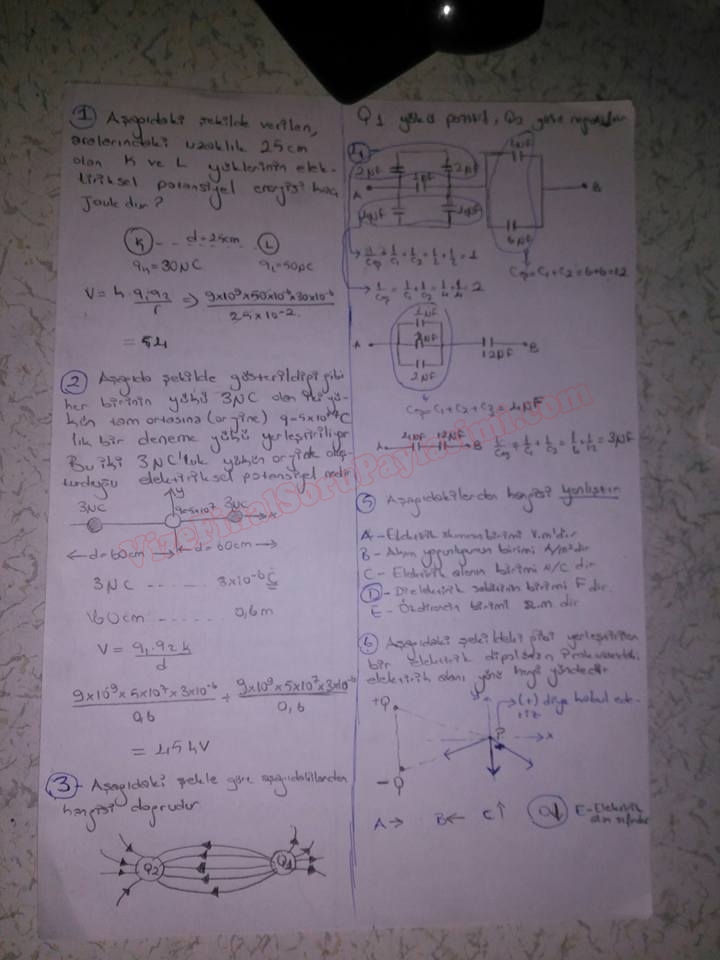 1 Aşağıdaki şekilde verilen,
aralarındaki uzaklık 25cm
olan K ve L yüklerinin elek-
tiriksel potansiyel enerjisi kaç
Joule dur?
K d=25cm L
qK=30NC qL=50NC
V=k q1.q2/r => 9x10^9x50x10^-6x30x10^-6/25x10^-2
= 54
2 Aşağıda şekilde gösterildiği gibi
her birinin yükü 3NC olan iki yü-
kün tam ortasına (orgine)
lik bir deneme yükü yerleştiriliyor
Bu iki 3NC'luk yükün orginde oluş-
turduğu elektiriksel potansiyel nedir
y
3NC 3NC x
d=60cm d=60cm
3NC ...... 3x10^-6 C
60cm ...... 0,6m
V = q1.q2 k/d
9x10^9x5x10^7x3x10^-6/0,6 + 9x10^9x5x10^7x3x10^-6/0,6
= 45kV
3 - Aşağıdaki şekle göre aşağıdakilerden
hangisi doğrudur
Q2 Q1
Q1 yükü pozitif, Q2 yükü
4
2NF 2NF
A B
6NF
Ceş=C1+C2=6+6=12
1/Ceş = 1/C1+1/C2 = 1/2+1/2 = 1
1/Ceş = 1/C1+1/C2 = 1/4+1/4 = 2
A B
2NF
12NF
Ceş=C1+C2+C3=4NF
4NF 12NF
A B 1/Ceş = 1/C1+1/C2 = =3NF
5 Aşağıdakilerden hangisi yanlıştır
A- Elektirik akısının birimi V.m'dir
B- Akım yoğunluğunun birimi A/m²dir
C- Elektirik alanın birimi N/C dir
D- Dielektirik sabitinin birimi F dir
E- Özdirencin birimi Ω.m dir
6 Aşağıdaki şekildeki gibi yerleştirilen
bir elektirik dipolünün P noktasındaki
elektirik alanı yönü hangi yöndedir
+Q
-Q
P
x
(+) diye kabul ede-
riz
A → B ← C ↑ D ↓ E- Elektirik
alan sıfırdır
VizeFinalSoruPaylasimi.com